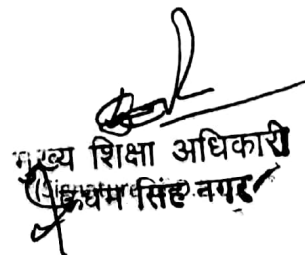 मुख्य शिक्षा अधिकारी
(Signature)
ऊधम सिंह नगर